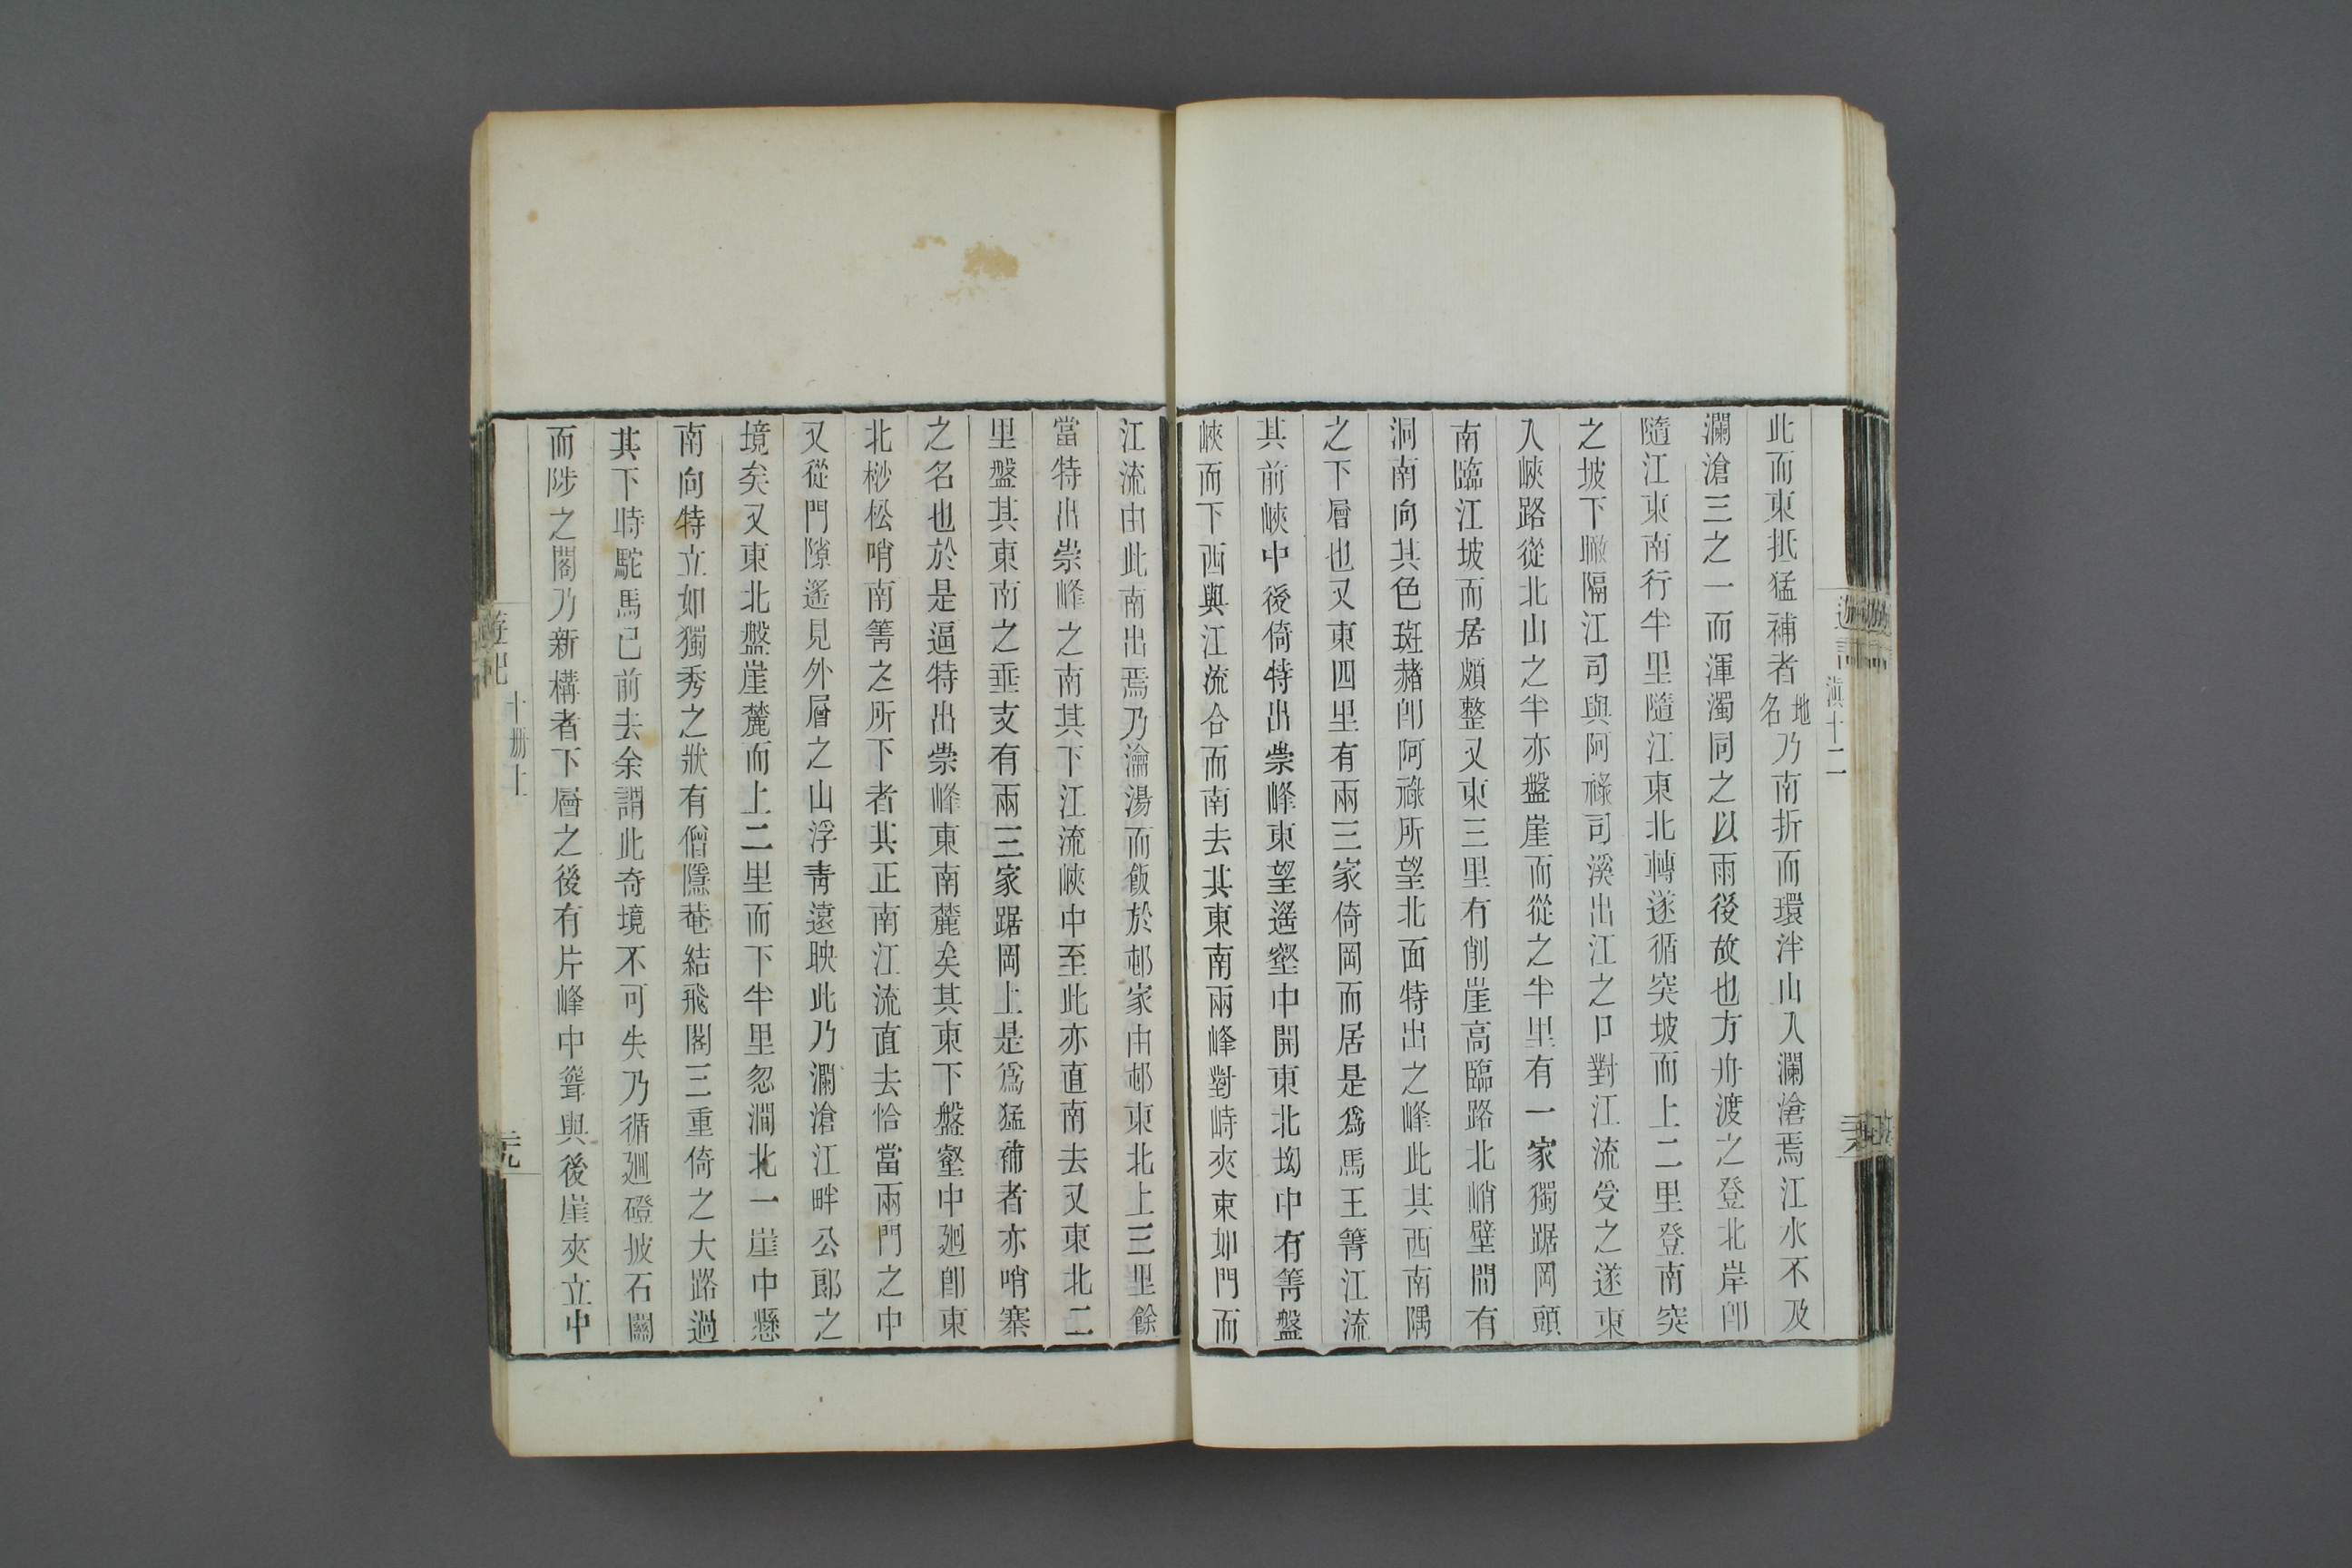 滇十二
此而東抵猛補者地名乃南折而環泮山入瀾滄焉江水不及
瀾滄三之一而渾濁同之以雨後故也方舟渡之登北岸卽
隨江東南行半里隨江東北轉遂循突坡而上二里登南突
之坡下瞰隔江司與阿祿司溪出江之口對江流受之遂東
入峽路從北山之半亦盤崖而從之半里有一家獨踞岡頭
南臨江坡而居頗整又東三里有削崖高臨路北峭壁間有
洞南向其色斑赭卽阿祿所望北面特出之峰此其西南隅
之下層也又東四里有兩三家倚岡而居是爲馬王箐江流
其前峽中後倚特出崇峰東望遙壑中開東北坳中有箐盤
峽而下西與江流合而南去其東南兩峰對峙夾東如門而
江流由此南出焉乃瀹湯而飯於邨家由邨東北上三里餘
當特出崇峰之南其下江流峽中至此亦直南去又東北二
里盤其東南之垂支有兩三家踞岡上是爲猛補者亦哨寨
之名也於是逼特出崇峰東南麓矣其東下盤壑中廻卽東
北杪松哨南箐之所下者其正南江流直去恰當兩門之中
又從門隙遙見外層之山浮靑遠映此乃瀾滄江畔公郎之
境矣又東北盤崖麓而上二里而下半里忽澗北一崖中懸
南向特立如獨秀之狀有僧隱菴結飛閣三重倚之大路過
其下時駝馬已前去余謂此奇境不可失乃循廻磴披石關
而陟之閣乃新構者下層之後有片峰中聳與後崖夾立中
遊記
十册上